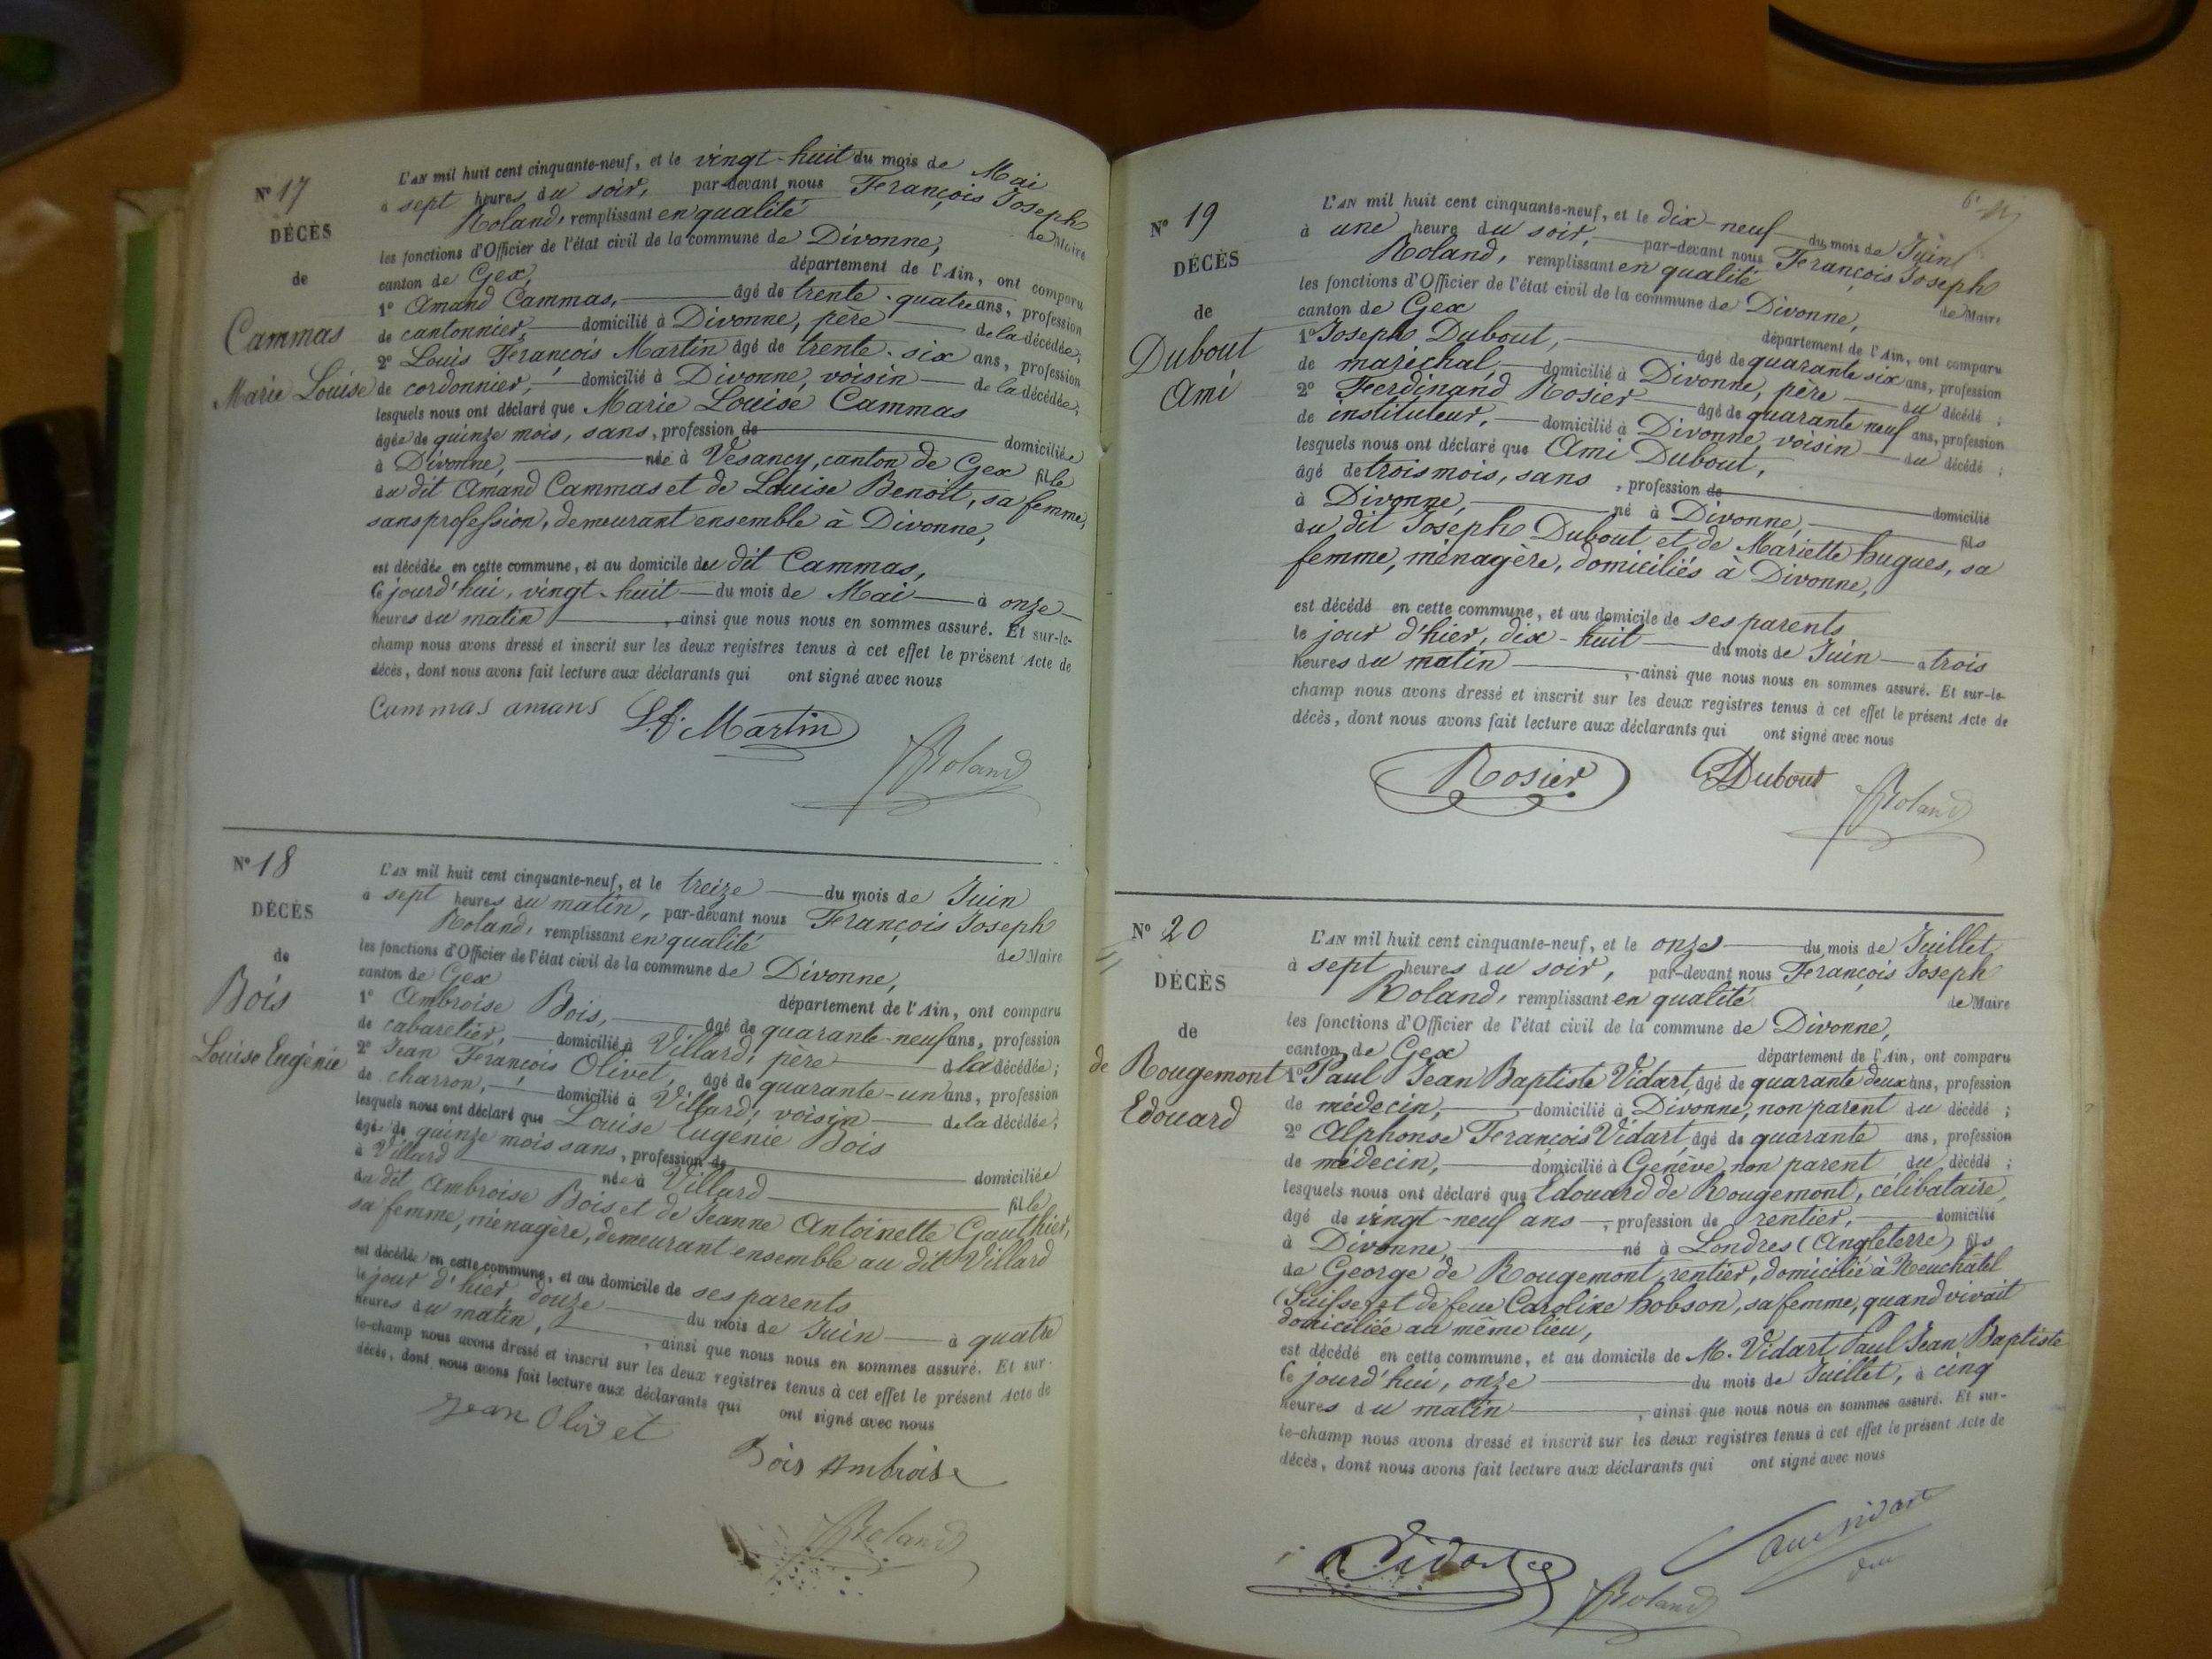 N° 17
DÉCÈS
de
Cammas
Marie Louise
L'AN mil huit cent cinquante-neuf, et le vingt-huit du mois de Mai
à sept heures du soir, par-devant nous François Joseph
Roland, remplissant en qualité de Maire
les fonctions d'Officier de l'état civil de la commune de Divonne,
canton de Gex, département de l'Ain, ont comparu
1° Amand Cammas, âgé de trente-quatre ans, profession
de cantonnier, domicilié à Divonne, père de la décédée;
2° Louis François Martin âgé de trente-six ans, profession
de cordonnier, domicilié à Divonne, voisin de la décédée;
lesquels nous ont déclaré que Marie Louise Cammas
âgée de quinze mois, sans, profession de domiciliée
à Divonne, née à Vesancy, canton de Gex fille
du dit Amand Cammas et de Louise Benoit, sa femme,
sans profession, demeurant ensemble à Divonne,
est décédée en cette commune, et au domicile du dit Cammas,
Ce jourd'hui, vingt-huit du mois de Mai à onze
heures du matin, ainsi que nous nous en sommes assuré. Et sur-le-
champ nous avons dressé et inscrit sur les deux registres tenus à cet effet le présent Acte de
décès, dont nous avons fait lecture aux déclarants qui ont signé avec nous
Cammas amans L.f. Martin
Roland
N° 18
DÉCÈS
de
Bois
Louise Eugénie
L'AN mil huit cent cinquante-neuf, et le treize du mois de Juin
à sept heures du matin, par-devant nous François Joseph
Roland, remplissant en qualité de Maire
les fonctions d'Officier de l'état civil de la commune de Divonne,
canton de Gex département de l'Ain, ont comparu
1° Ambroise Bois, âgé de quarante-neuf ans, profession
de cabaretier, domicilié à Villard, père de la décédée;
2° Jean François Olivet, âgé de quarante-un ans, profession
de charron, domicilié à Villard, voisin de la décédée;
lesquels nous ont déclaré que Louise Eugénie Bois
âgée de quinze mois sans, profession de domiciliée
à Villard née à Villard fille
du dit Ambroise Bois et de Jeanne Antoinette Gauthier,
sa femme, ménagère, demeurant ensemble au dit Villard
est décédée en cette commune, et au domicile de ses parents
le jour d'hier, douze du mois de Juin à quatre
heures du matin, ainsi que nous nous en sommes assuré. Et sur-
le-champ nous avons dressé et inscrit sur les deux registres tenus à cet effet le présent Acte de
décès, dont nous avons fait lecture aux déclarants qui ont signé avec nous
Jean Olivet
Bois Ambroise
Roland
N° 19
DÉCÈS
de
Dubout
Ami
L'AN mil huit cent cinquante-neuf, et le dix-neuf du mois de Juin
à une heure du soir, par-devant nous François Joseph
Roland, remplissant en qualité de Maire
les fonctions d'Officier de l'état civil de la commune de Divonne,
canton de Gex département de l'Ain, ont comparu
1° Joseph Dubout, âgé de quarante six ans, profession
de maréchal, domicilié à Divonne, père du décédé;
2° Ferdinand Rosier âgé de quarante neuf ans, profession
de instituteur, domicilié à Divonne, voisin du décédé;
lesquels nous ont déclaré que Ami Dubout,
âgé de trois mois, sans, profession de domicilié
à Divonne, né à Divonne, fils
du dit Joseph Dubout et de Mariette hugues, sa
femme, ménagère, domiciliés à Divonne,
est décédé en cette commune, et au domicile de ses parents
le jour d'hier, dix-huit du mois de Juin à trois
heures du matin, ainsi que nous nous en sommes assuré. Et sur-le-
champ nous avons dressé et inscrit sur les deux registres tenus à cet effet le présent Acte de
décès, dont nous avons fait lecture aux déclarants qui ont signé avec nous
Rosier Dubout
Roland
N° 20
DÉCÈS
de
de Rougemont
Edouard
L'AN mil huit cent cinquante-neuf, et le onze du mois de Juillet
à sept heures du soir, par-devant nous François Joseph
Roland, remplissant en qualité de Maire
les fonctions d'Officier de l'état civil de la commune de Divonne,
canton de Gex département de l'Ain, ont comparu
1° Paul Jean Baptiste Vidart, âgé de quarante deux ans, profession
de médecin, domicilié à Divonne, non parent du décédé;
2° Alphonse François Vidart âgé de quarante ans, profession
de médecin, domicilié à Genève, non parent du décédé;
lesquels nous ont déclaré que Edouard de Rougemont, célibataire,
âgé de vingt-neuf ans, profession de rentier, domicilié
à Divonne, né à Londres (Angleterre) fils
de George de Rougemont, rentier, domicilié à Neuchâtel
(Suisse) et de feue Caroline hobson, sa femme, quand vivait
domiciliée au même lieu,
est décédé en cette commune, et au domicile de M. Vidart Paul Jean Baptiste
Ce jourd'hui, onze du mois de Juillet, à cinq
heures du matin, ainsi que nous nous en sommes assuré. Et sur-
le-champ nous avons dressé et inscrit sur les deux registres tenus à cet effet le présent Acte de
décès, dont nous avons fait lecture aux déclarants qui ont signé avec nous
Vidart
Roland